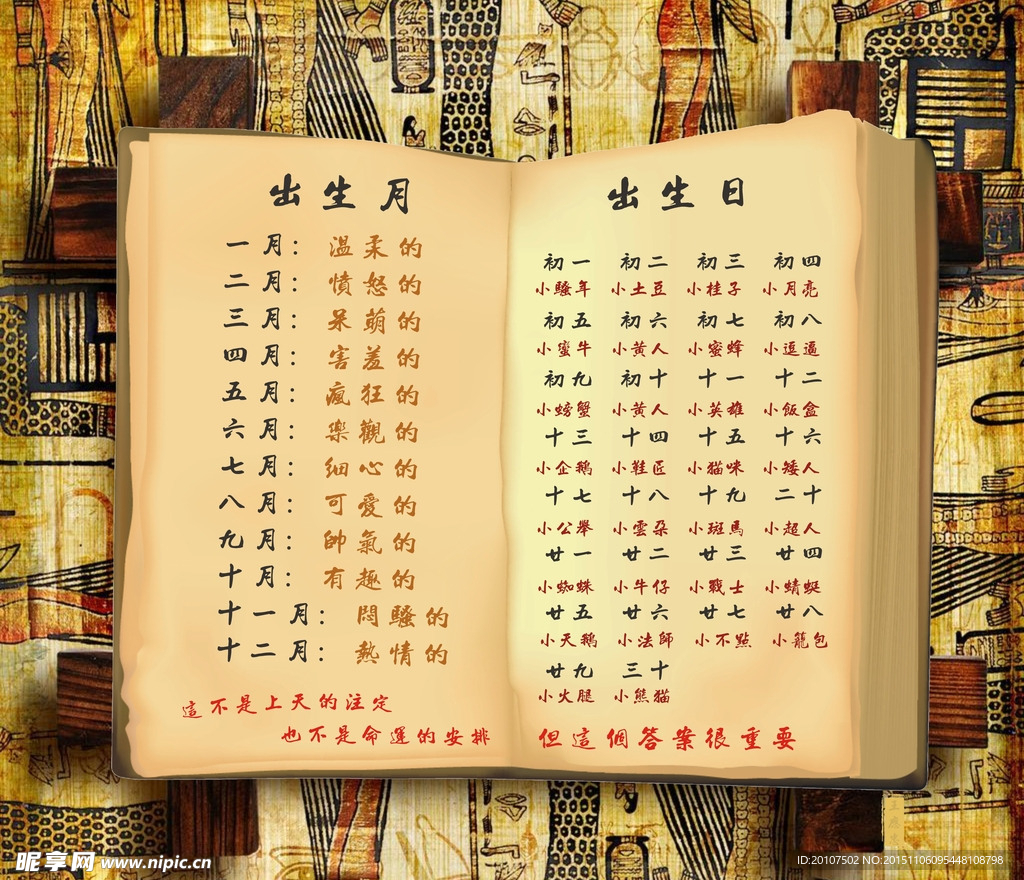 出生月
一月： 温柔的
二月： 憤怒的
三月： 呆萌的
四月： 害羞的
五月： 瘋狂的
六月： 樂觀的
七月： 细心的
八月： 可愛的
九月： 帥氣的
十月： 有趣的
十一月： 悶騷的
十二月： 熱情的
這不是上天的注定
也不是命運的安排
出生日
初一 初二 初三 初四
小騷年 小土豆 小桂子 小月亮
初五 初六 初七 初八
小蜜牛 小黄人 小蜜蜂 小逗逼
初九 初十 十一 十二
小螃蟹 小黄人 小英雄 小飯盒
十三 十四 十五 十六
小企鵝 小鞋匠 小猫咪 小矮人
十七 十八 十九 二十
小公舉 小雲朵 小斑馬 小超人
廿一 廿二 廿三 廿四
小蜘蛛 小牛仔 小戰士 小蜻蜓
廿五 廿六 廿七 廿八
小天鵝 小法師 小不點 小籠包
廿九 三十
小火腿 小熊猫
但這個答案很重要
昵享网 www.nipic.cn
ID:20107502 NO:20151106095448108798